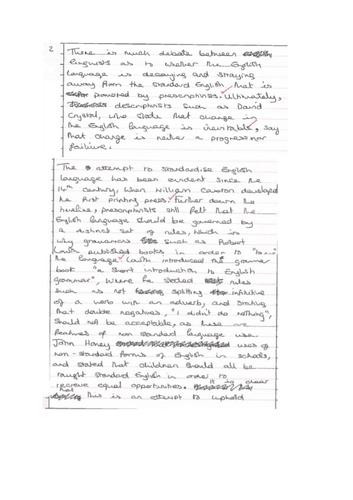 2
There is much debate between
linguists as to whether the English
language is decaying and straying
away from the standard English that is
promoted by prescriptivists. Ultimately,
descriptivists such as David
Crystal, who state that change in
the English language is inevitable, say
that change is neither a progress nor
failure.
The attempt to standardise English
language has been evident since the
14th century, when William Caxton developed
the first printing press. Further down the
timeline, prescriptivists still felt that the
English language should be governed by
a distinct set of rules, which is
why grammarians such as Robert
Lowth published books in order to
the language. Lowth introduced the grammar
book "a short introduction to English
grammar", where he stated rules
such as not splitting the infinitive
of a word with an adverb, and stating
that double negatives, "I didn't do nothing",
should not be acceptable, as these are
features of non standard language use.
John Honey uses of
non-standard forms of English in schools,
and stated that children should all be
taught standard English in order to
receive equal opportunities. It is clear
that this is an attempt to uphold